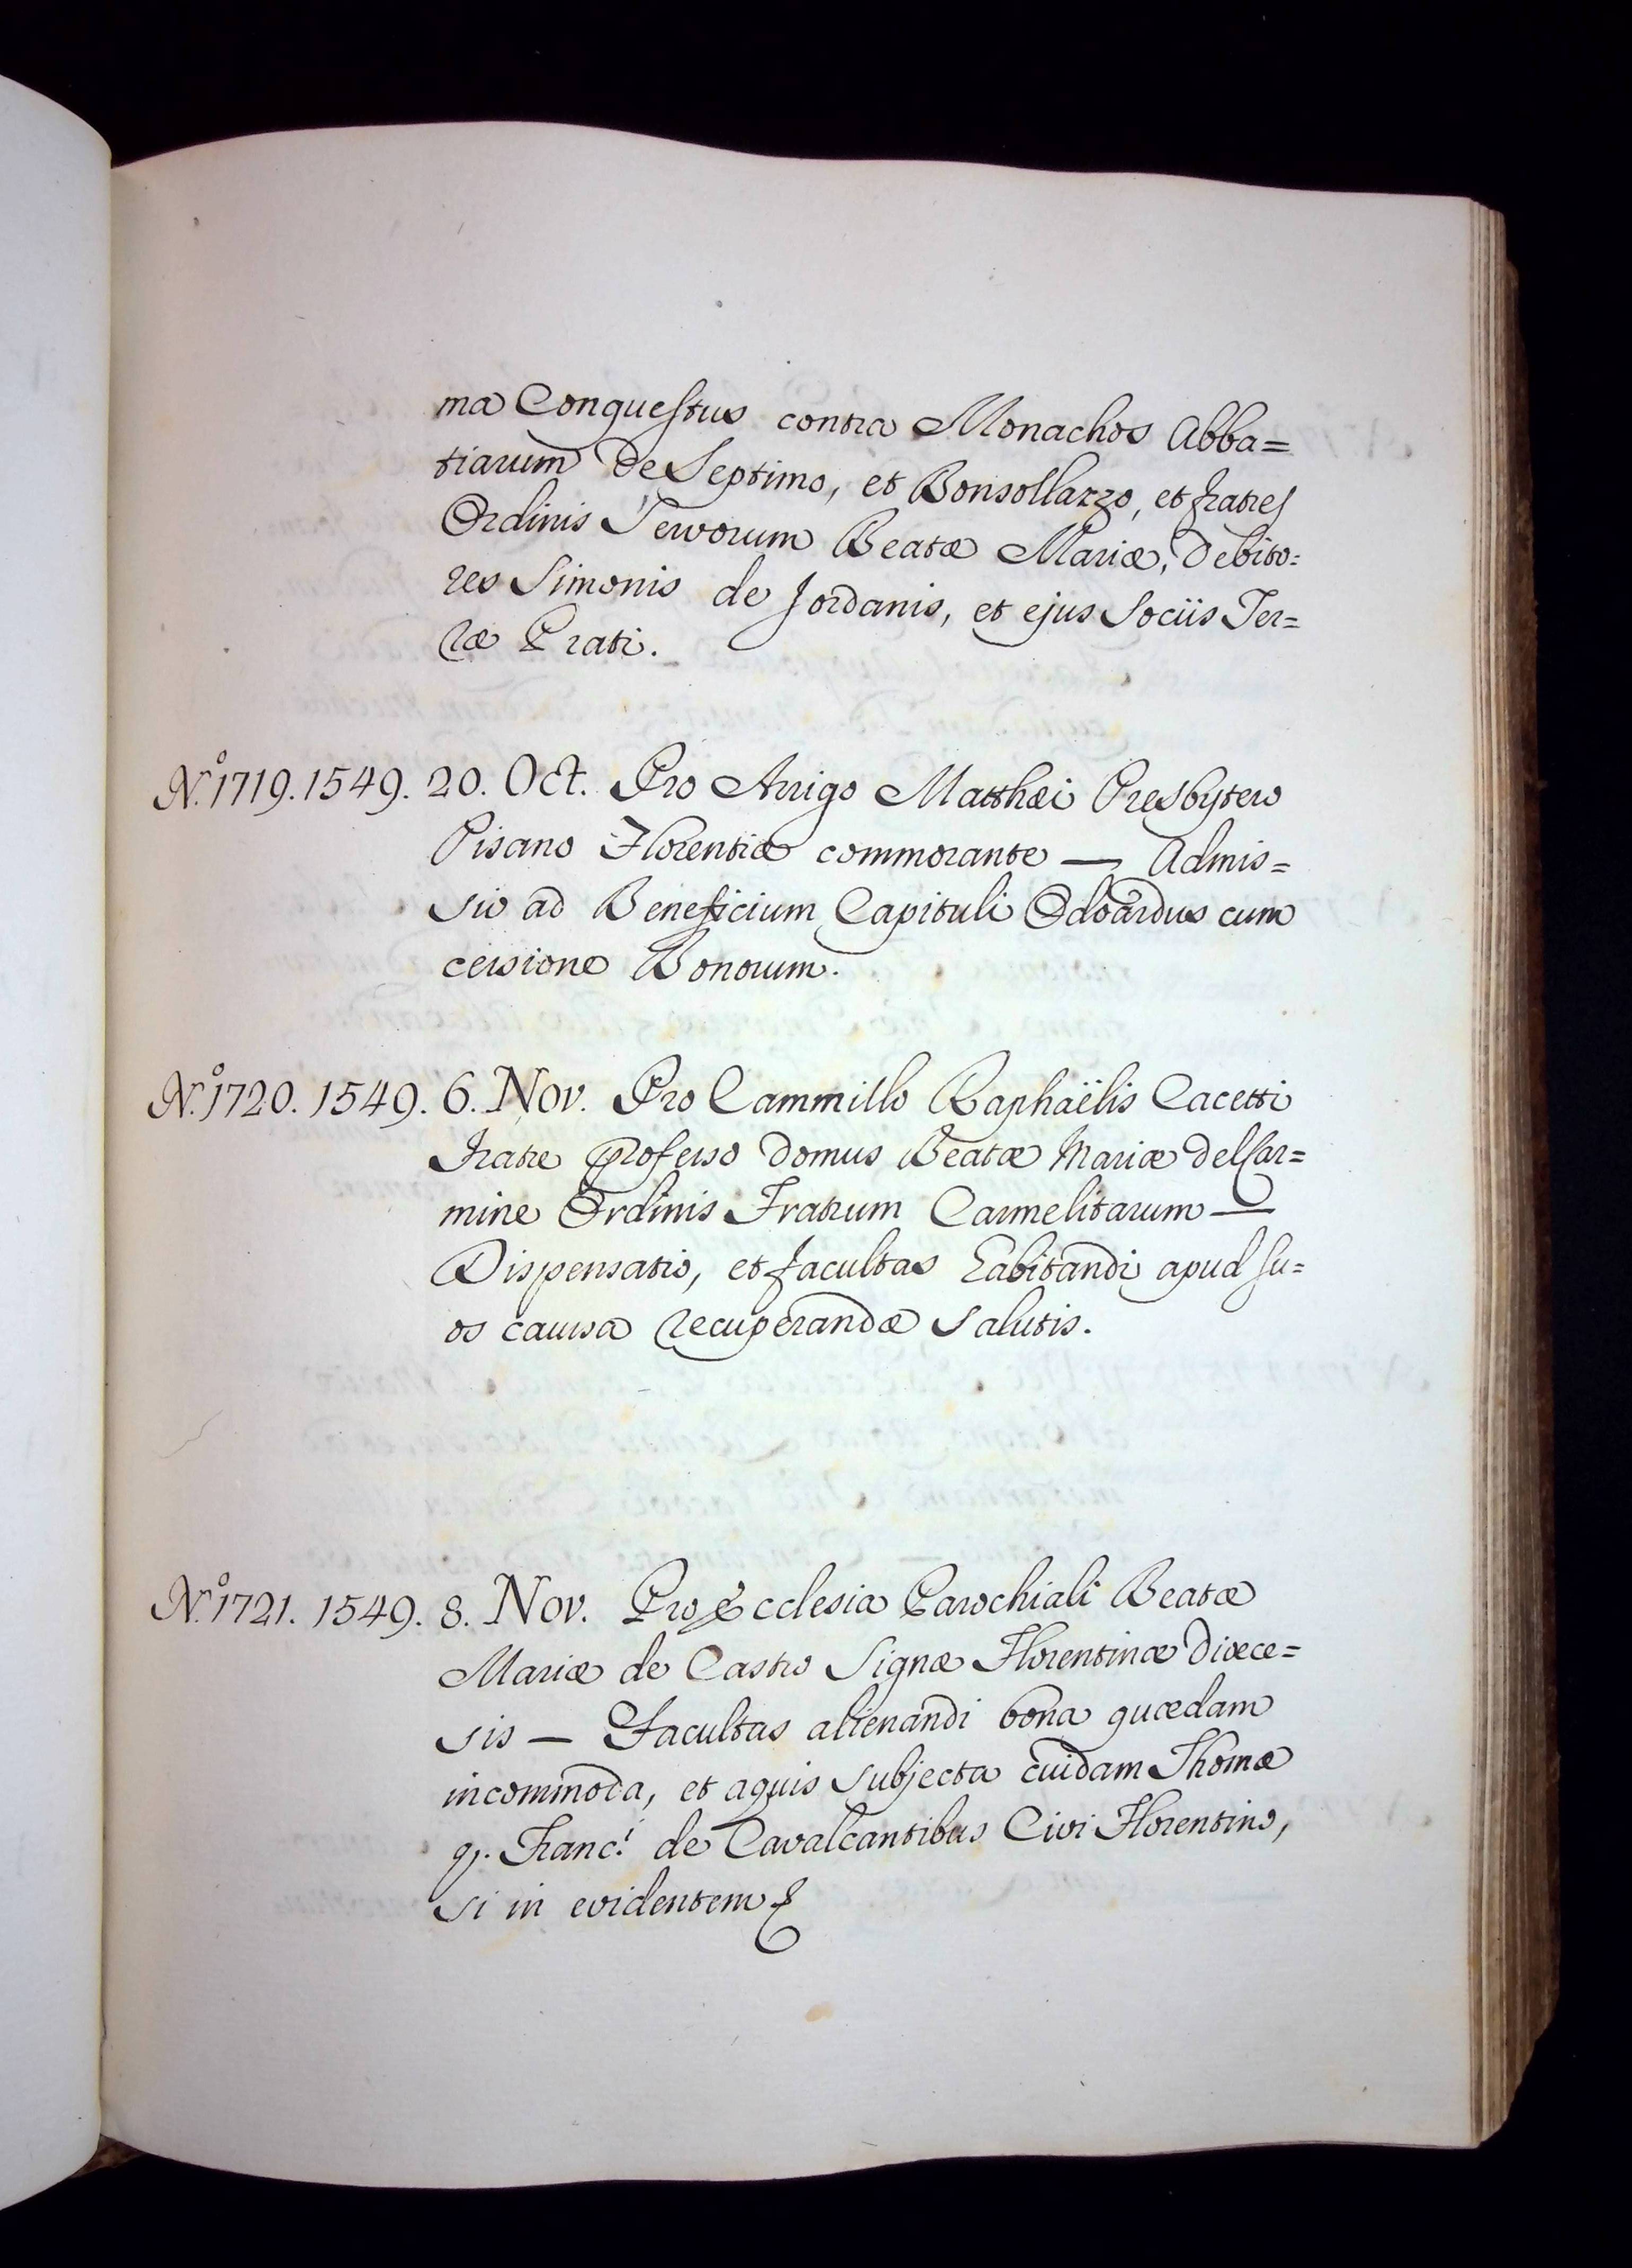 ma Conquestus contra Monachos Abba=
tiarum de Septimo, et Bonsollazzo, et fratres
Ordinis Servorum Beatæ Mariæ, debito=
res Simonis de Jordanis, et ejus Sociis Ter=
ræ Prati.
N.º 1719. 1549. 20. Oct. Pro Arrigo Matthæi Presbytero
Pisano Florentiæ commorante — Admis=
sio ad Beneficium Capituli Odoardus cum
cessione Bonorum.
N.º 1720. 1549. 6. Nov. Pro Cammillo Raphaëlis Cacetti
Fratre professo domus Beatæ Mariæ del Car=
mine Ordinis Fratrum Carmelitarum —
Dispensatio, et facultas habitandi apud su=
os caussa recuperandæ salutis.
N.º 1721. 1549. 8. Nov. Pro Ecclesia Parochiali Beatæ
Mariæ de Castro Signæ Florentinæ Diœce=
sis — Facultas alienandi bona quædam
incommoda, et aquis subjecta cuidam Thomæ
q. Franc.i de Cavalcantibus Civi Florentino,
si in evidentem &